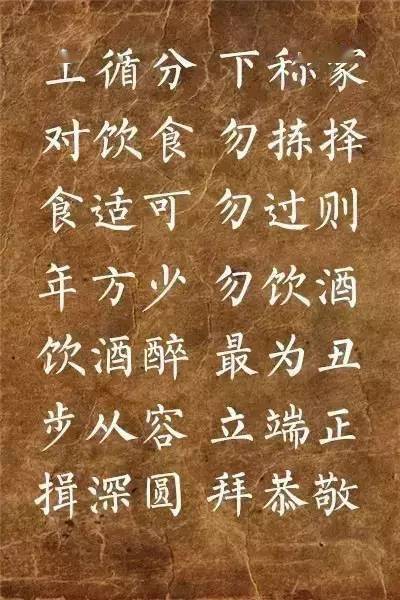 上循分 下称家
对饮食 勿拣择
食适可 勿过则
年方少 勿饮酒
饮酒醉 最为丑
步从容 立端正
揖深圆 拜恭敬